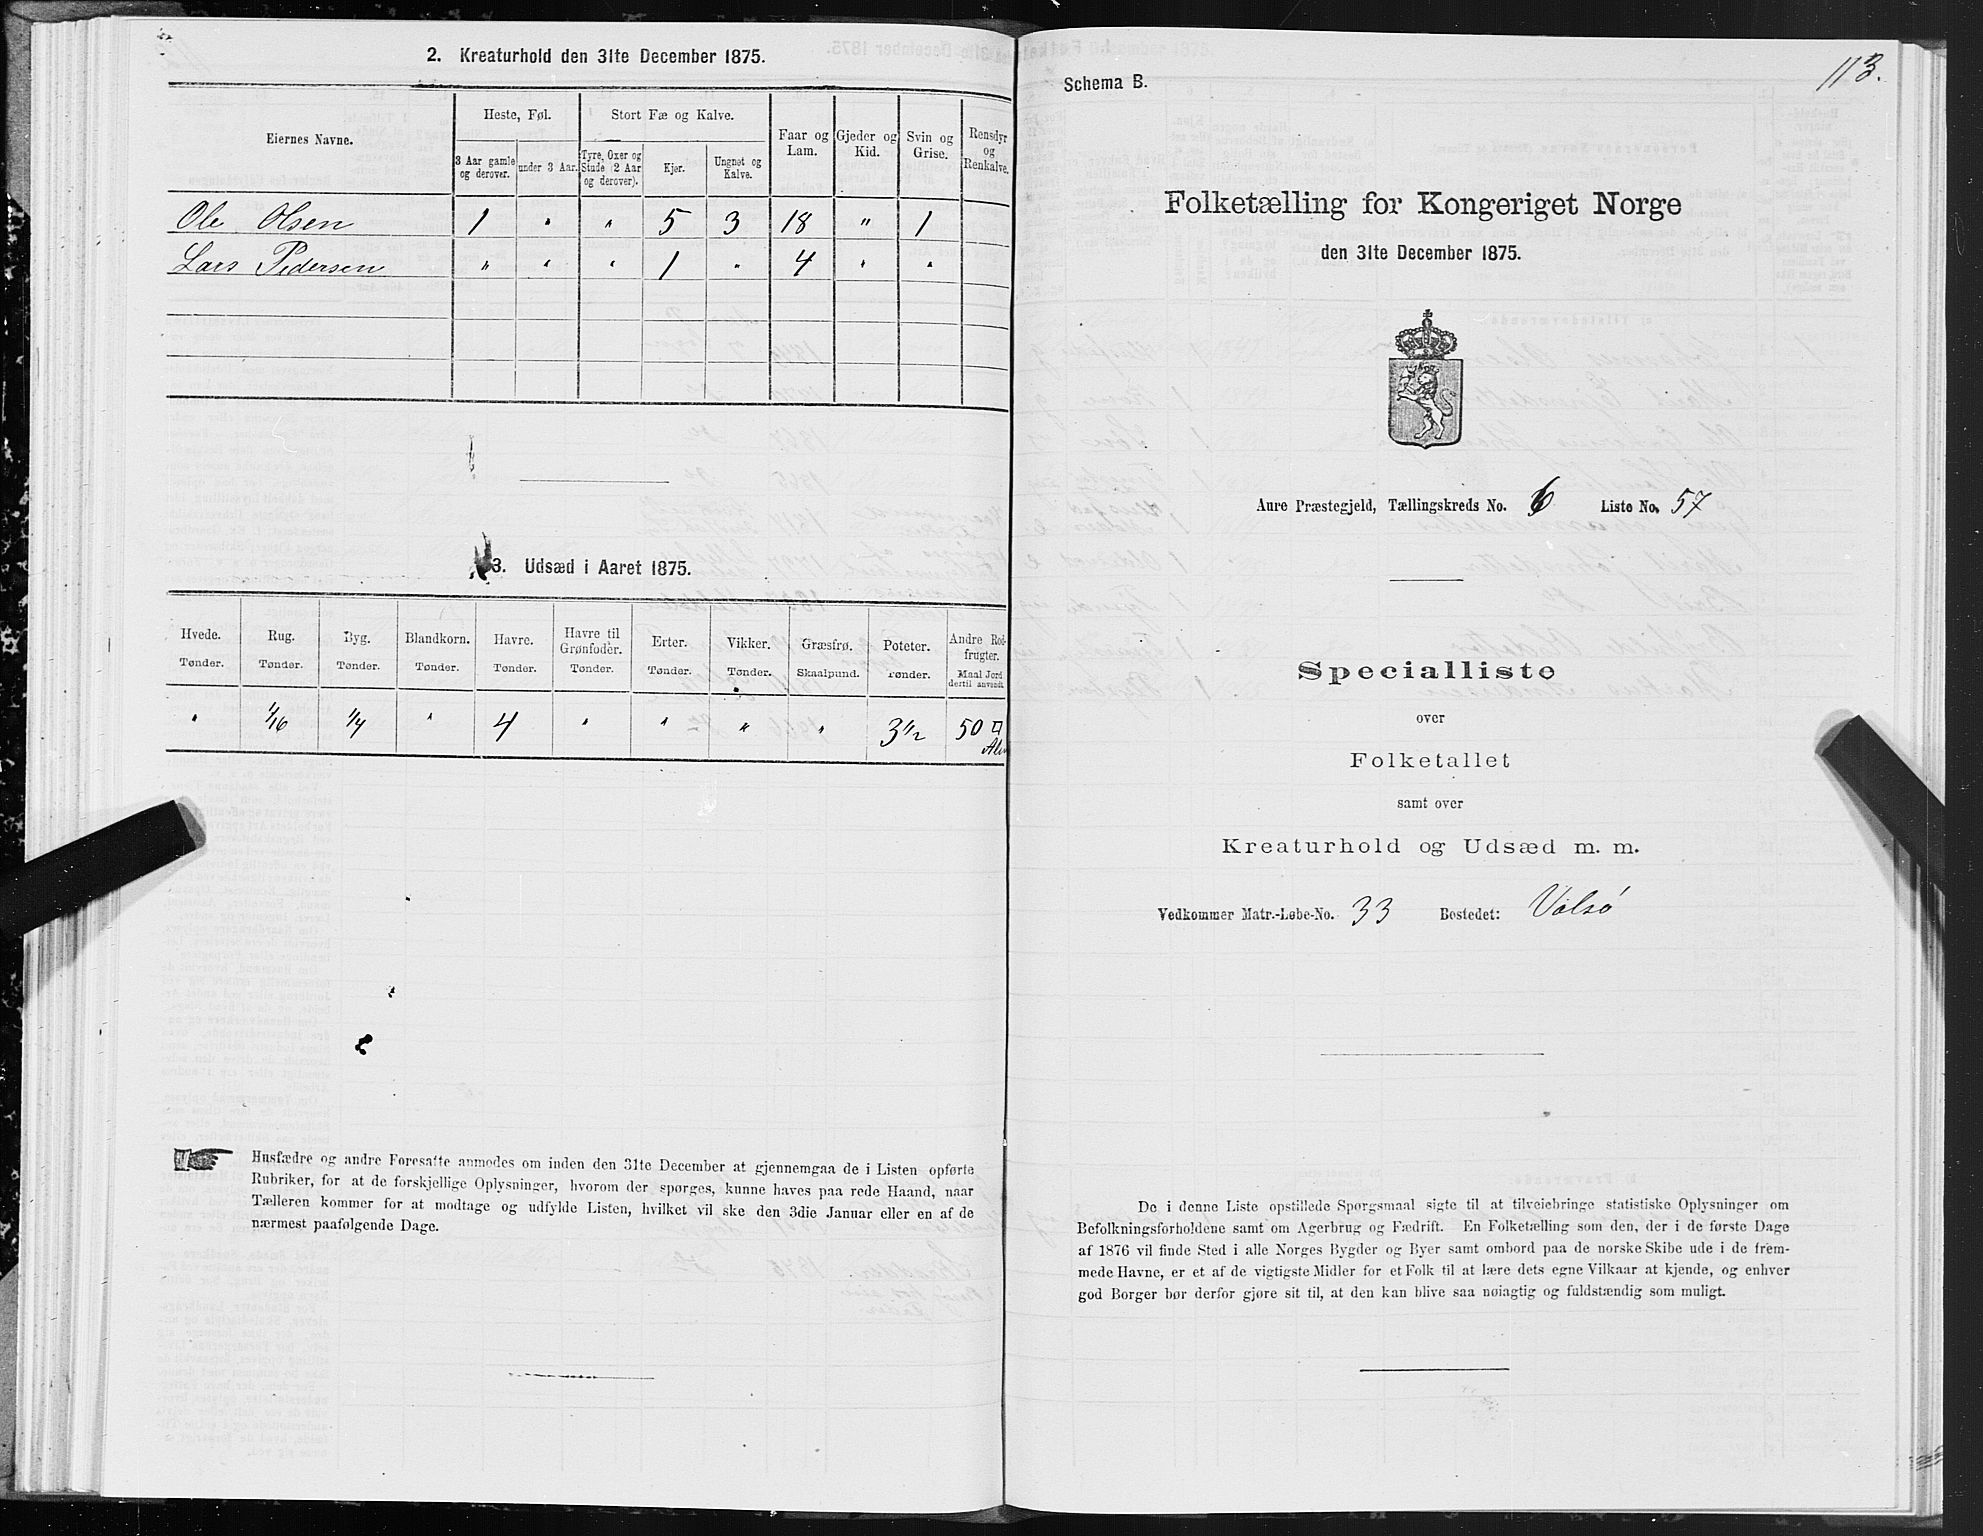 2. Kreaturhold den 31te December 1875.
Eiernes Navne.
Heste, Føl.
Stort Fæ og Kalve.
Faar og Lam.
Gjeder og Kid.
Svin og Grise.
Rensdyr og Renkalve.
3 Aar gamle og derover.
under 3 Aar.
Tyre, Oxer og Stude (2 Aar og derover).
Kjer.
Ungnøt og Kalve.
Ole Olsen 1 " " 5 3 18 " 1
Lars Pedersen " " " 1 " 4 " "
3. Udsæd i Aaret 1875.
Hvede. Rug. Byg. Blandkorn. Havre. Havre til Grønfoder. Erter. Vikker. Græsfrø. Poteter. Andre Rodfrugter.
Tønder. Tønder. Tønder. Tønder. Tønder. Tønder. Tønder. Tønder. Skaalpund. Tønder. Maal Jord dertil anvendt
" 1/16 1/4 " 4 " " " " 3 1/2 50 □ Alen
Husfædre og andre Foresatte anmodes om inden den 31te December at gjennemgaa de i Listen opførte
Rubriker, for at de forskjellige Oplysninger, hvorom der spørges, kunne haves paa rede Haand, naar
Tælleren kommer for at modtage og udfylde Listen, hvilket vil ske den 3die Januar eller en af de
nærmest paafølgende Dage.
113.
Schema B.
Folketælling for Kongeriget Norge
den 31te December 1875.
Aure Præstegjeld, Tællingskreds No. 6 Liste No. 57
Specialliste
over
Folketallet
samt over
Kreaturhold og Udsæd m. m.
Vedkommer Matr.-Løbe-No. 33 Bostedet: Valsø
De i denne Liste opstillede Spørgsmaal sigte til at tilveiebringe statistiske Oplysninger om
Befolkningsforholdene samt om Agerbrug og Fædrift. En Folketælling som den, der i de første Dage
af 1876 vil finde Sted i alle Norges Bygder og Byer samt ombord paa de norske Skibe ude i de frem-
mede Havne, er et af de vigtigste Midler for et Folk til at lære dets egne Vilkaar at kjende, og enhver
god Borger bør derfor gjøre sit til, at den kan blive saa nøiagtig og fuldstændig som muligt.